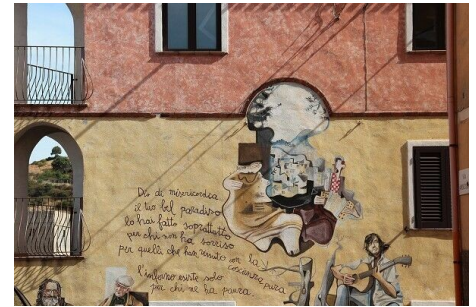 Dio di misericordia
il tuo bel paradiso
lo hai fatto soprattutto
per chi non ha sorriso
per quelli che han vissuto con la
coscienza pura
l'inferno esiste solo
per chi ne ha paura